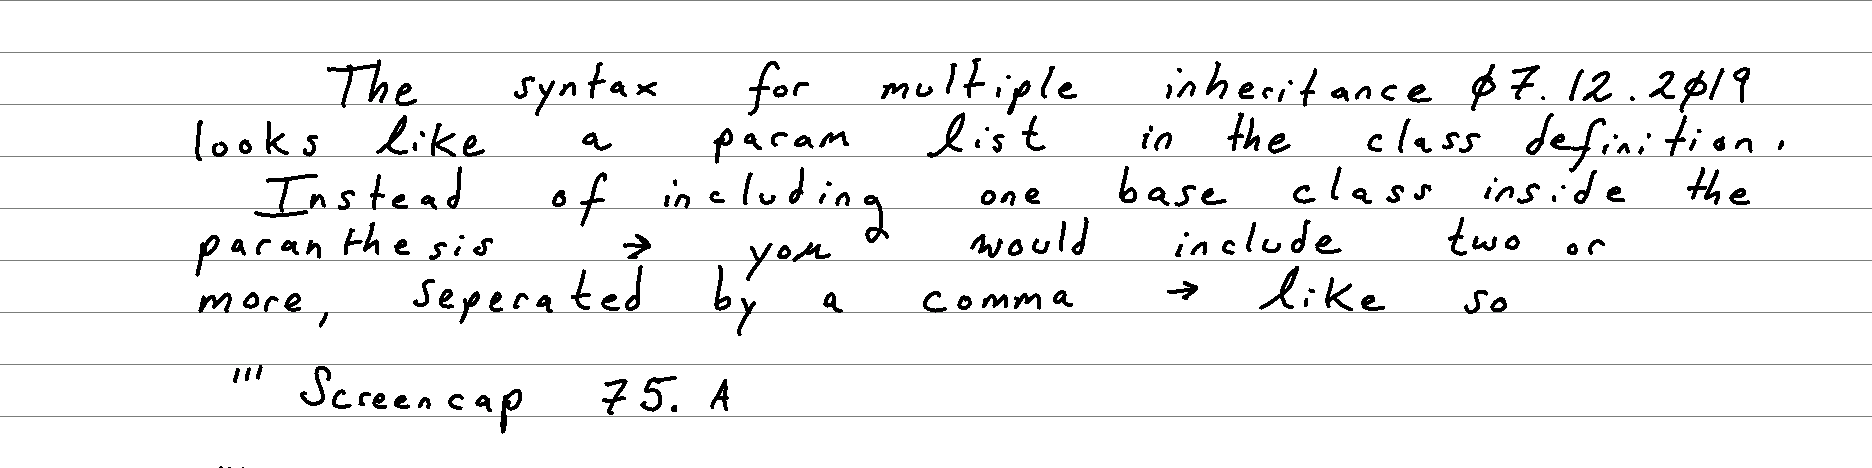 The syntax for multiple inheritance 07.12.2019
looks like a param list in the class definition.
Instead of including one base class inside the
paranthesis → you would include two or
more, seperated by a comma → like so
''' Screencap 75. A